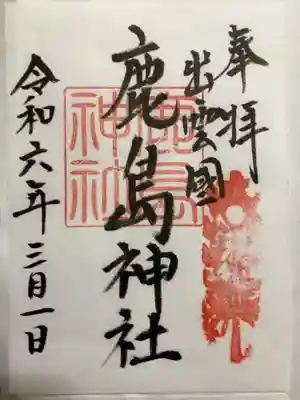 奉拝
出雲國
鹿島神社
令和六年三月一日